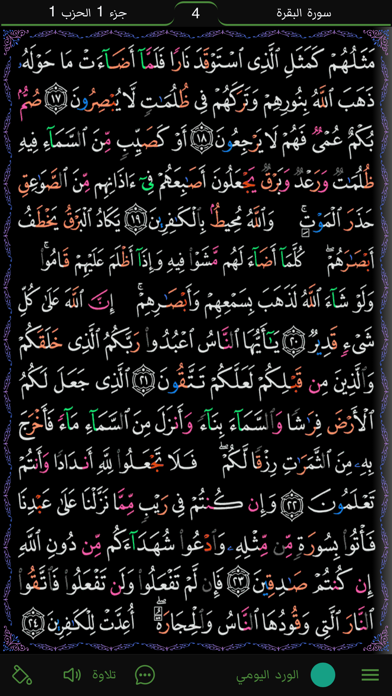 سورة البقرة 4 جزء 1 الحزب 1
مَثَلُهُمْ كَمَثَلِ ٱلَّذِى ٱسْتَوْقَدَ نَارًا فَلَمَّآ أَضَآءَتْ مَا حَوْلَهُۥ
ذَهَبَ ٱللَّهُ بِنُورِهِمْ وَتَرَكَهُمْ فِى ظُلُمَٰتٍ لَّا يُبْصِرُونَ ١٧ صُمٌّۢ
بُكْمٌ عُمْىٌ فَهُمْ لَا يَرْجِعُونَ ١٨ أَوْ كَصَيِّبٍ مِّنَ ٱلسَّمَآءِ فِيهِ
ظُلُمَٰتٌ وَرَعْدٌ وَبَرْقٌ يَجْعَلُونَ أَصَٰبِعَهُمْ فِىٓ ءَاذَانِهِم مِّنَ ٱلصَّوَٰعِقِ
حَذَرَ ٱلْمَوْتِ ۚ وَٱللَّهُ مُحِيطٌۢ بِٱلْكَٰفِرِينَ ١٩ يَكَادُ ٱلْبَرْقُ يَخْطَفُ
أَبْصَٰرَهُمْ ۖ كُلَّمَآ أَضَآءَ لَهُم مَّشَوْا۟ فِيهِ وَإِذَآ أَظْلَمَ عَلَيْهِمْ قَامُوا۟ ۚ
وَلَوْ شَآءَ ٱللَّهُ لَذَهَبَ بِسَمْعِهِمْ وَأَبْصَٰرِهِمْ ۚ إِنَّ ٱللَّهَ عَلَىٰ كُلِّ
شَىْءٍ قَدِيرٌ ٢٠ يَٰٓأَيُّهَا ٱلنَّاسُ ٱعْبُدُوا۟ رَبَّكُمُ ٱلَّذِى خَلَقَكُمْ
وَٱلَّذِينَ مِن قَبْلِكُمْ لَعَلَّكُمْ تَتَّقُونَ ٢١ ٱلَّذِى جَعَلَ لَكُمُ
ٱلْأَرْضَ فِرَٰشًا وَٱلسَّمَآءَ بِنَآءً وَأَنزَلَ مِنَ ٱلسَّمَآءِ مَآءً فَأَخْرَجَ
بِهِۦ مِنَ ٱلثَّمَرَٰتِ رِزْقًا لَّكُمْ ۖ فَلَا تَجْعَلُوا۟ لِلَّهِ أَندَادًا وَأَنتُمْ
تَعْلَمُونَ ٢٢ وَإِن كُنتُمْ فِى رَيْبٍ مِّمَّا نَزَّلْنَا عَلَىٰ عَبْدِنَا
فَأْتُوا۟ بِسُورَةٍ مِّن مِّثْلِهِۦ وَٱدْعُوا۟ شُهَدَآءَكُم مِّن دُونِ ٱللَّهِ
إِن كُنتُمْ صَٰدِقِينَ ٢٣ فَإِن لَّمْ تَفْعَلُوا۟ وَلَن تَفْعَلُوا۟ فَٱتَّقُوا۟
ٱلنَّارَ ٱلَّتِى وَقُودُهَا ٱلنَّاسُ وَٱلْحِجَارَةُ ۖ أُعِدَّتْ لِلْكَٰفِرِينَ ٢٤
الورد اليومي تلاوة